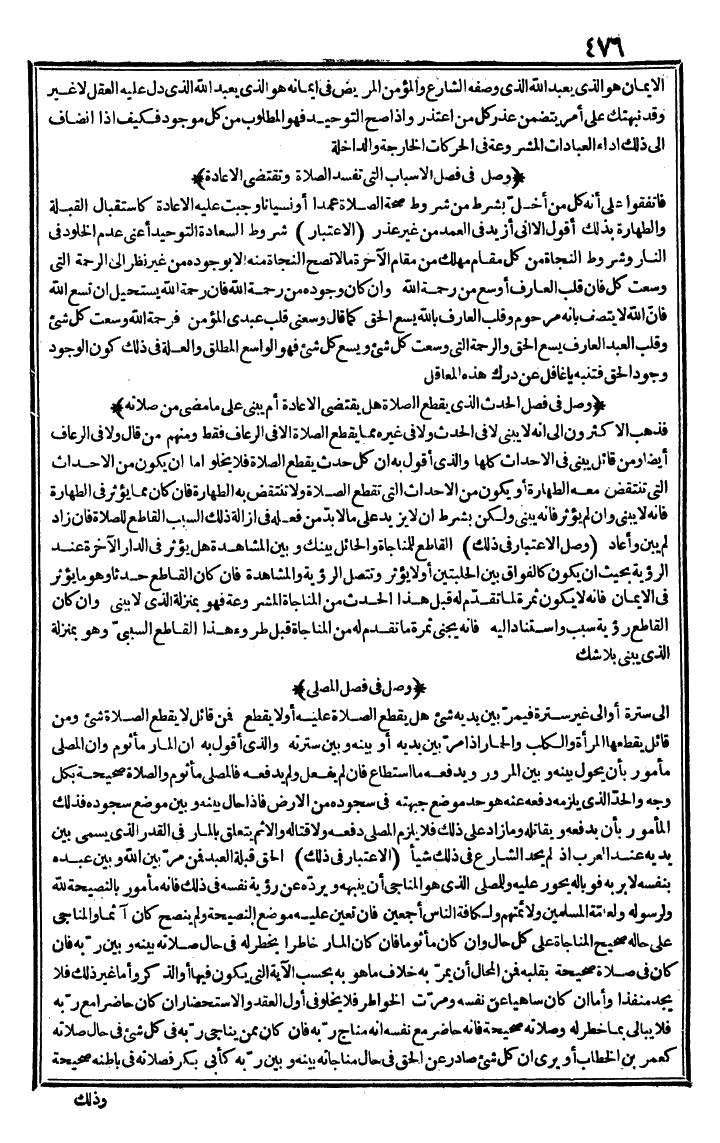 ٤٧٦
الايمان هو الذى يعبد الله الذى وصفه الشارع والمؤمن المريض فى ايمانه هو الذى يعبد الله الذى دل عليه العقل لا غير
وقد نبهتك على أمر يتضمن عذر كل من اعتذر واذا صح التوحيد فهو المطلوب من كل موجود فكيف اذا انضاف
الى ذلك اداء العبادات المشروعة فى الحركات الخارجة والداخلة
﴿وصل فى فصل الاسباب التى تفسد الصلاة وتقتضى الاعادة﴾
فاتفقوا على أنه كل من أخلّ بشرط من شروط صحة الصلاة عمدا أو نسيانا وجبت عليه الاعادة كاستقبال القبلة
والطهارة بذلك أقول الا انى أزيد فى العمد من غير عذر (الاعتبار) شروط السعادة التوحيد أعنى عدم الخلود فى
النار وشروط النجاة من كل مقام مهلك من مقام الآخرة ما لا تصح النجاة منه الا بوجوده من غير نظر الى الرحمة التى
وسعت كل فان قلب العارف أوسع من رحمة الله وان كان وجوده من رحمة الله فان رحمة الله يستحيل ان تسع الله
فانّ الله لا يتصف بانه مرحوم وقلب العارف بالله يسع الحق كما قال وسعنى قلب عبدى المؤمن فرحمة الله وسعت كل شئ
وقلب العبد العارف يسع الحق والرحمة التى وسعت كل شئ ويسع كل شئ فهو الواسع المطلق والعلة فى ذلك كون الوجود
وجود الحق فتنبه يا غافل عن درك هذه المعاقل
﴿وصل فى فصل الحدث الذى يقطع الصلاة هل يقتضى الاعادة أم يبنى على ما مضى من صلاته﴾
فذهب الاكثرون الى انه لا يبنى لا فى الحدث ولا فى غيره مما يقطع الصلاة الا فى الرعاف فقط ومنهم من قال ولا فى الرعاف
أيضا ومن قائل يبنى فى الاحداث كلها والذى أقول به ان كل حدث يقطع الصلاة فلا يخلو اما ان يكون من الاحداث
التى تنتقض معه الطهارة أو يكون من الاحداث التى تقطع الصلاة ولا تنتقض به الطهارة فان كان مما يؤثر فى الطهارة
فانه لا يبنى وان لم يؤثر فانه يبنى ولكن بشرط ان لا يزيد على ما لا بدّ من فعله فى ازالة ذلك السبب القاطع للصلاة فان زاد
لم يبن وأعاد (وصل الاعتبار فى ذلك) القاطع للمناجاة والحائل بينك وبين المشاهدة هل يؤثر فى الدار الآخرة عند
الرؤية بحيث ان يكون كالفواق بين الحلبتين أو لا يؤثر وتتصل الرؤية والمشاهدة فان كان القاطع حدثا وهو ما يؤثر
فى الايمان فانه لا يكون ثمرة لما تقدّم له قبل هذا الحدث من المناجاة المشروعة فهو بمنزلة الذى لا يبنى وان كان
القاطع رؤية سبب واستنادا اليه فانه يجنى ثمرة ما تقدم له من المناجاة قبل طروء هذا القاطع السببىّ وهو بمنزلة
الذى يبنى بلا شك
﴿وصل فى فصل المصلى﴾
الى سترة أو الى غير سترة فيمرّ بين يديه شئ هل يقطع الصلاة عليه أو لا يقطع فمن قائل لا يقطع الصلاة شئ ومن
قائل يقطعها المرأة والكلب والحمار اذا مرّ بين يديه أو بينه وبين سترته والذى أقول به ان المار مأثوم وان المصلى
مأمور بأن يحول بينه وبين المرور ويدفعه ما استطاع فان لم يفعل ولم يدفعه فالمصلى مأثوم والصلاة صحيحة بكل
وجه والحدّ الذى يلزمه دفعه عنه هو حد موضع جبهته فى سجوده من الارض فاذا حال بينه وبين موضع سجوده فذلك
المأمور بأن يدفعه ويقاتله وما زاد على ذلك فلا يلزم المصلى دفعه ولا قتاله والاثم يتعلق بالمار فى القدر الذى يسمى بين
يديه عند العرب اذ لم يحد الشارع فى ذلك شيأ (الاعتبار فى ذلك) الحق قبلة العبد فمن مرّ بين الله وبين عبده
بنفسه لا بربه فوباله يحور عليه وللمصلى الذى هو المناجى أن ينبهه ويردّه عن رؤية نفسه فى ذلك فانه مأمور بالنصيحة لله
ولرسوله ولعامّة المسلمين ولائمتهم ولكافة الناس أجمعين فان تعين عليه موضع النصيحة ولم ينصح كان آثما والمناجى
على حاله صحيح المناجاة على كل حال وان كان مأثوما فان كان المار خاطرا يخطر له فى حال صلاته بينه وبين ربّه فان
كان فى صلاة صحيحة بقلبه فمن المحال أن يمرّ به خلاف ما هو به بحسب الآية التى يكون فيها أو الذكر وأما غير ذلك فلا
يجد منفذا وأما ان كان ساهيا عن نفسه ومرّت الخواطر فلا يخلو فى أول العقد والاستحضار ان كان حاضرا مع ربّه
فلا يبالى بما خطر له وصلاته صحيحة فانه حاضر مع نفسه انه مناج ربّه فان كان ممن يناجى ربّه فى كل شئ فى حال صلاته
كعمر بن الخطاب أو يرى ان كل شئ صادر عن الحق فى حال مناجاته بينه وبين ربّه كأبى بكر فصلاته فى باطنه صحيحة
وذلك